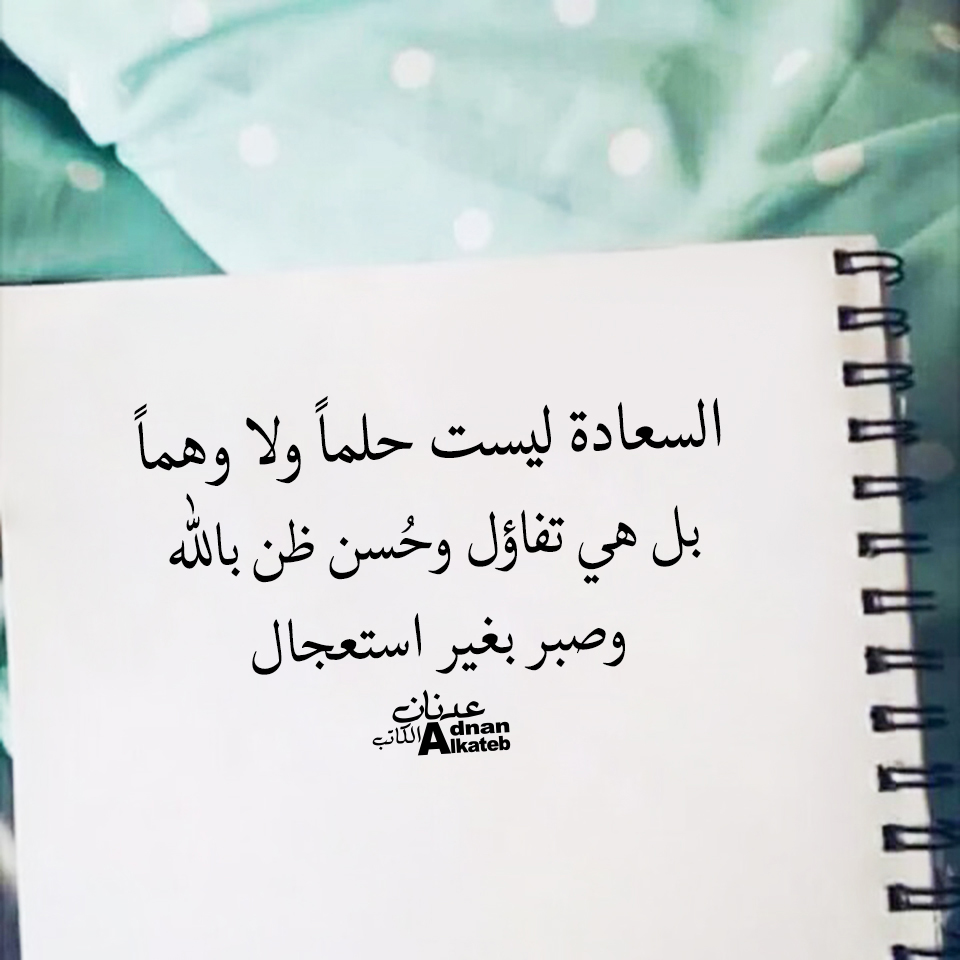 السعادة ليست حلماً ولا وهماً
بل هي تفاؤل وحُسن ظن بالله
وصبر بغير استعجال
عدنان الكاتب
Adnan Alkateb